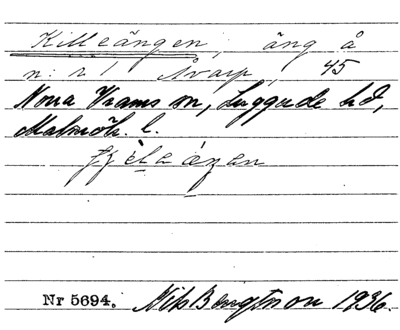 Killeängen, äng å
n:r 1 Åvarp, 45
Norra Vrams sn, Luggude hd,
Malmöh. l.
Nr 5694. Nils Bengtsson 1936.